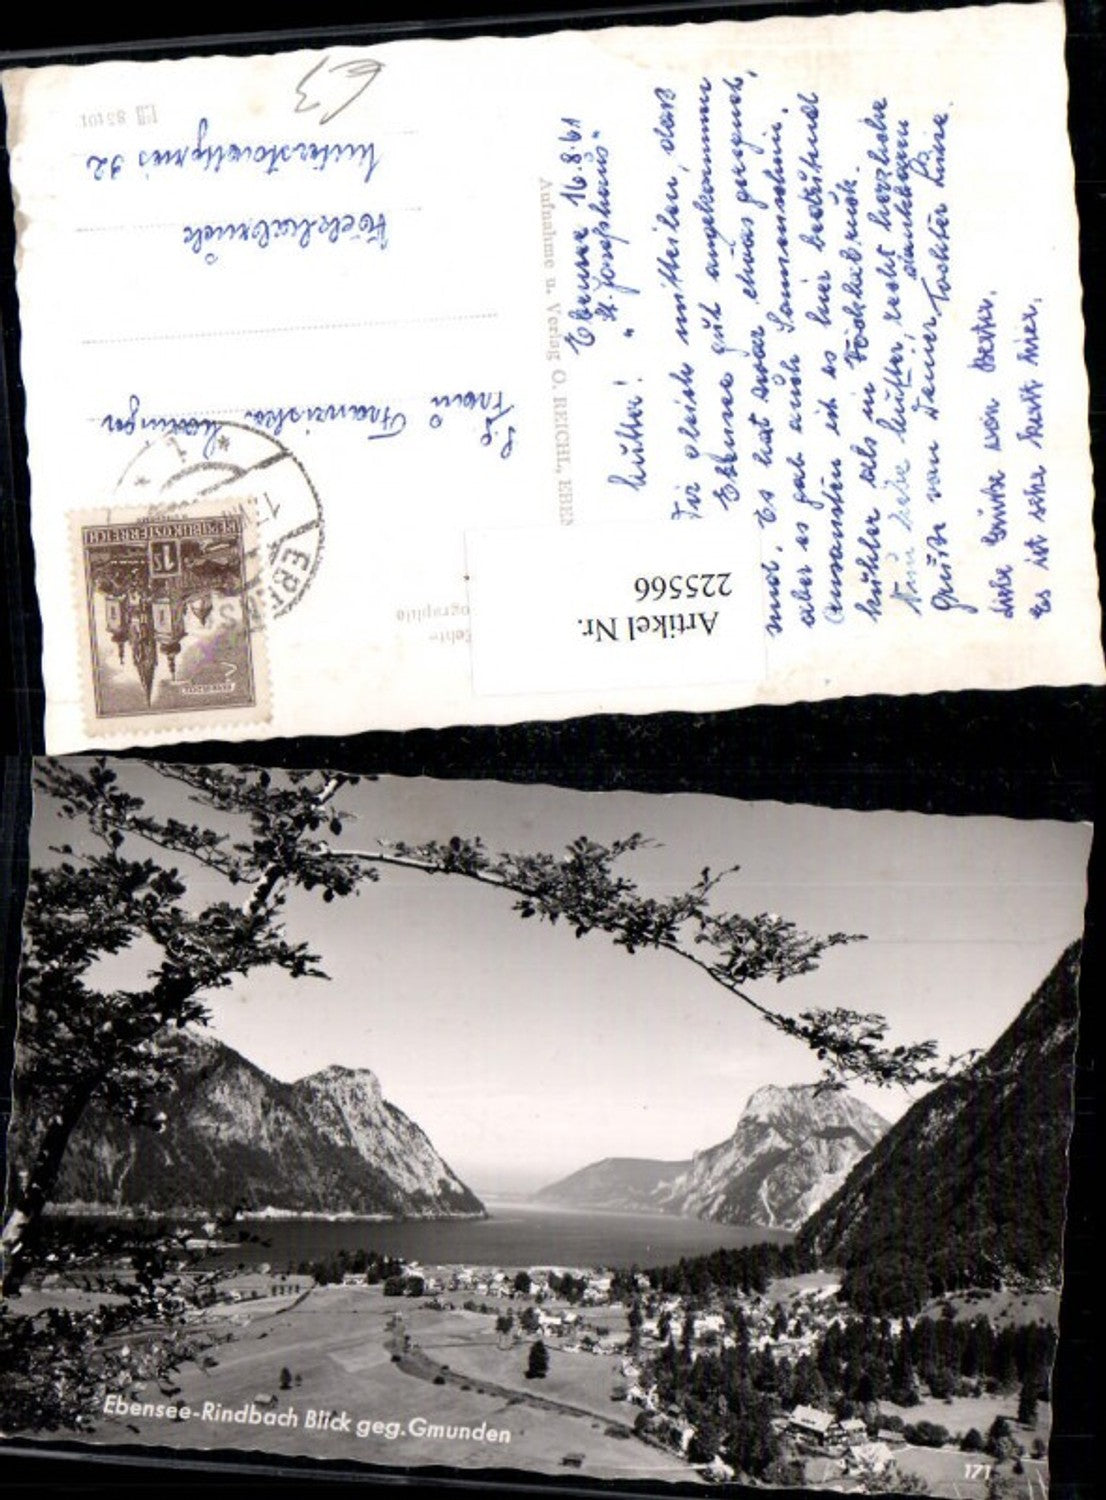 Ebensee 16.8.61
"St. Josefshaus"
Mutter!
Dir gleich mitteilen, dass
Ebensee gut angekommen
sind. Es hat zwar etwas geregnet,
aber es gab auch Sonnenschein.
Ansonsten ist es hier bedeutend
kühler als in Vöcklabruck.
Nun liebe Mutter, recht herzliche
Grüße von Deiner dankbaren Tochter
Liebe Grüße von
Es ist sehr nett hier.
Aufnahme u. Verlag O. REICHL, EBEN
Echte
ographie
Artikel Nr.
225566
Frau Franziska
Vöcklabruck
32
83101
REPUBLIK ÖSTERREICH
1S
EBENSEE
Ebensee-Rindbach Blick geg. Gmunden
171